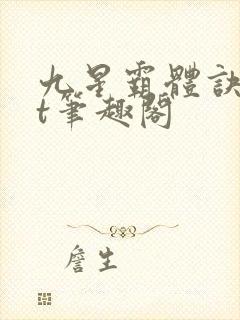 九星霸體訣
t筆趣閣
詹生